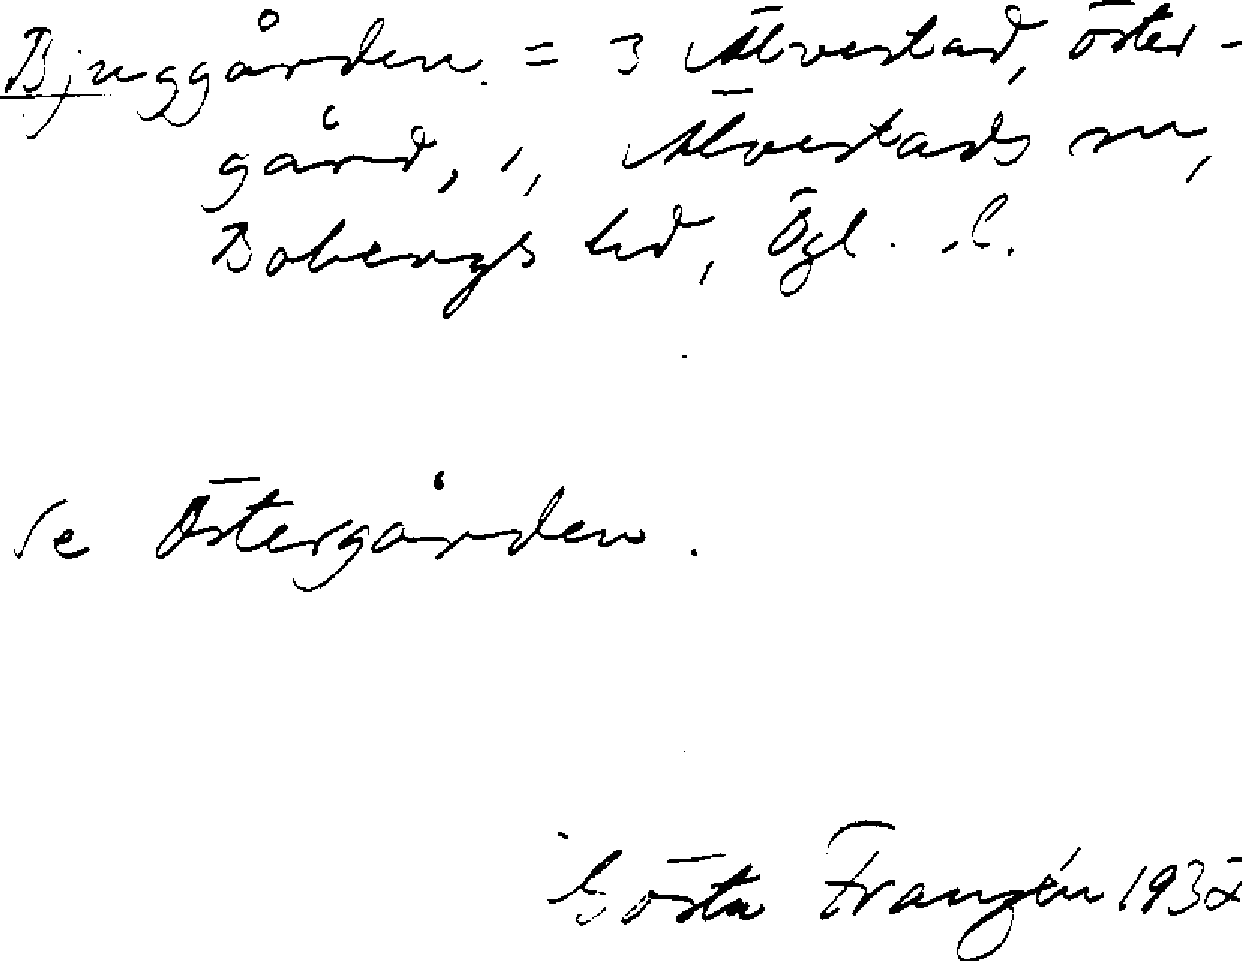 Bjuggården = 3 Älvestad, Öster-
gård, i, Älvestads sn,
Bobergs hd, Ögl. l.
Se Östergården.
Gösta Franzén 1932